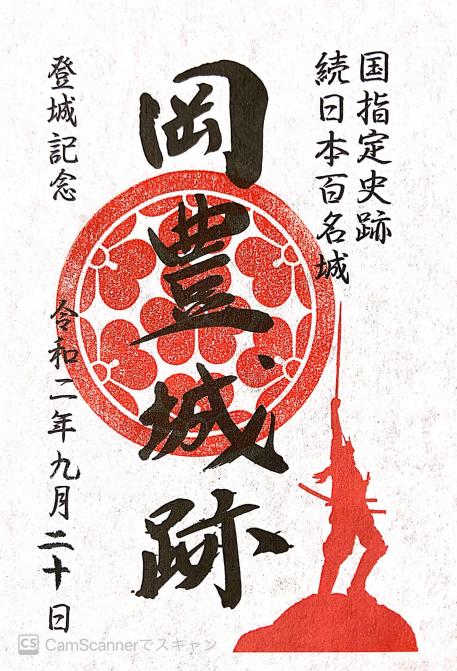 国指定史跡
続日本百名城
岡豊城跡
登城記念
令和二年九月二十日
CS CamScannerでスキャン